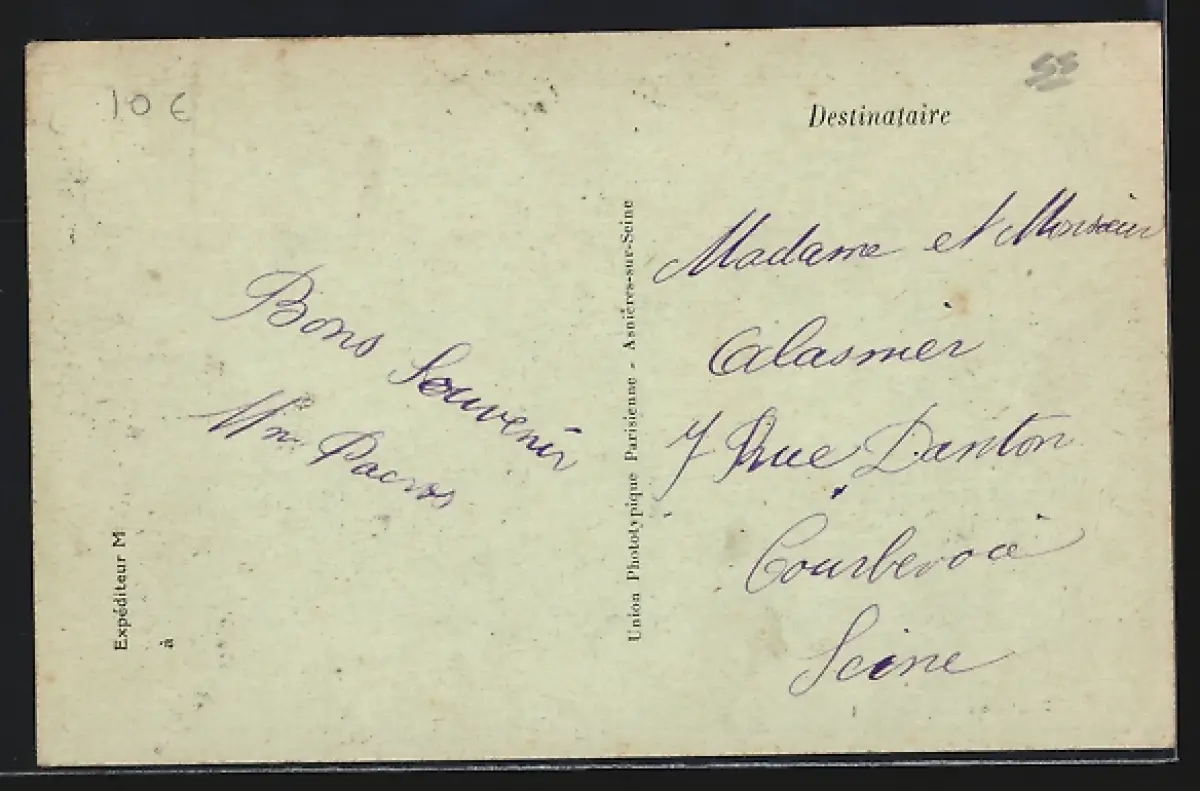 10 €
55
Destinataire
Bons Souvenir
Mme Pacros
Madame et Monsieur
Calasmier
7 Rue Danton
Courbevoie
Seine
Union Phototypique Parisienne - Asnières-sur-Seine
Expéditeur M
à